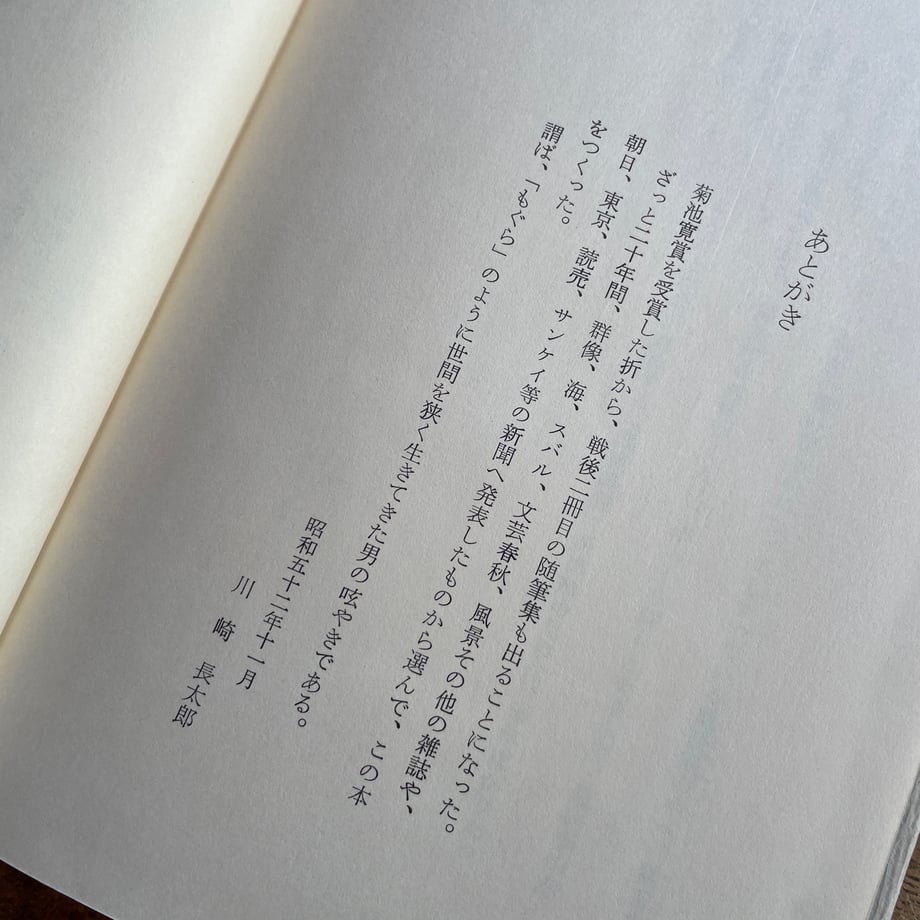 あとがき
菊池寛賞を受賞した折から、戦後二冊目の随筆集も出ることになった。
ざっと二十年間、群像、海、スバル、文芸春秋、風景その他の雑誌や、
朝日、東京、読売、サンケイ等の新聞へ発表したものから選んで、この本
をつくった。
謂ば、「もぐら」のように世間を狭く生きてきた男の呟やきである。
昭和五十二年十一月
川崎長太郎